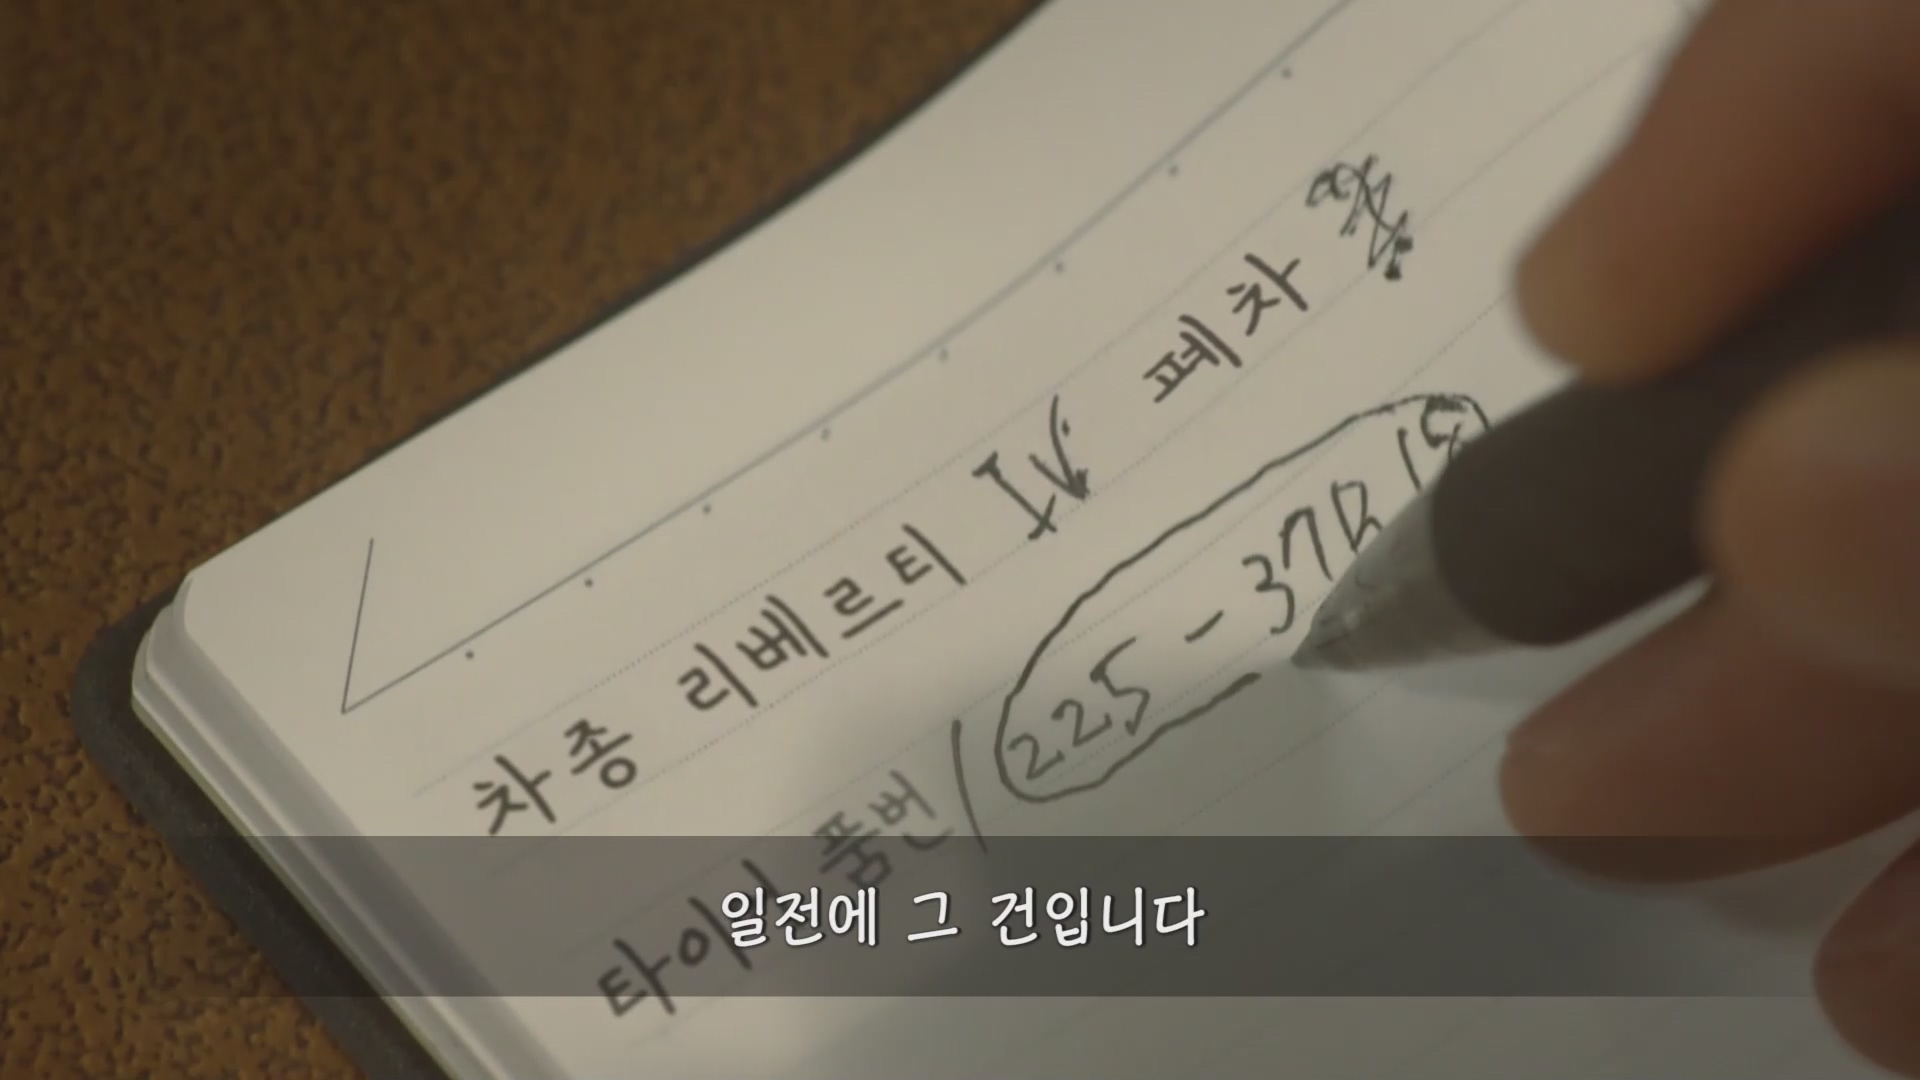 차종 리베르티 IV 폐차
타이어 품번/225-37R18
일전에 그 건입니다